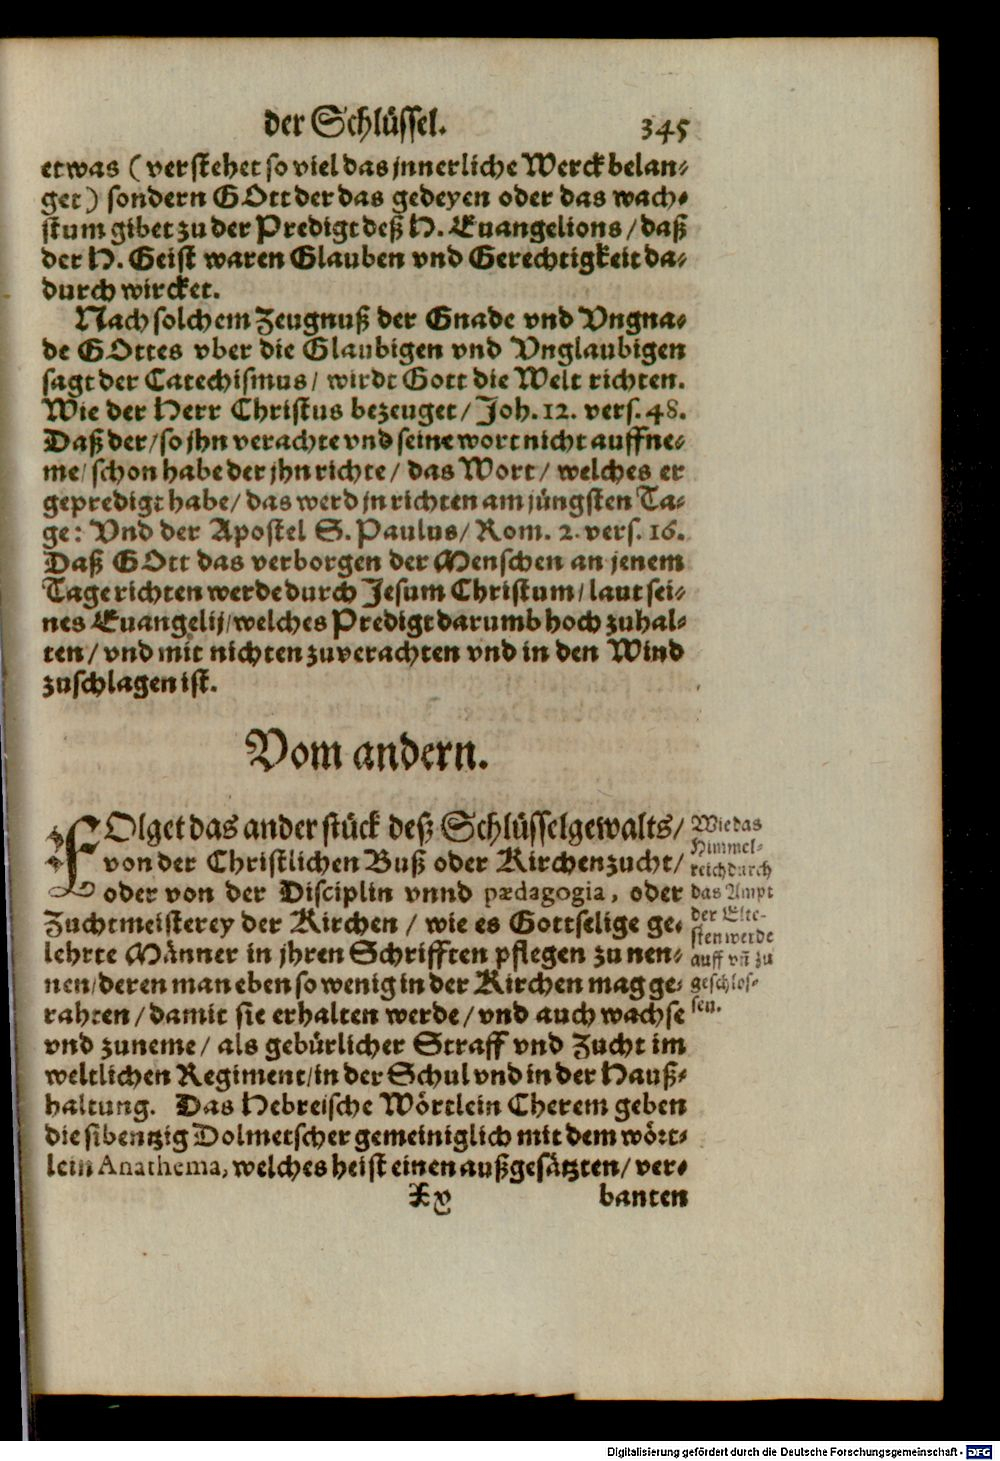 der Schlüssel. 345
etwas (verstehet so viel das jnnerliche Werck belan⸗
get) sondern GOtt der das gedeyen oder das wach⸗
stum gibet zu der Predigt deß H. Euangelions / daß
der H. Geist waren Glauben vnd Gerechtigkeit da⸗
durch wircket.
Nach solchem Zeugnuß der Gnade vnd Vngna⸗
de GOttes vber die Glaubigen vnd Vnglaubigen
sagt der Catechismus / wirdt Gott die Welt richten.
Wie der Herr Christus bezeuget / Joh. 12. vers. 48.
Daß der / so jhn verachte vnd seine wort nicht auffne⸗
me / schon habe der jhn richte / das Wort / welches er
gepredigt habe / das werd jn richten am jüngsten Ta⸗
ge: Vnd der Apostel S. Paulus / Rom. 2. vers. 16.
Daß GOtt das verborgen der Menschen an jenem
Tage richten werde durch Jesum Christum / laut sei⸗
nes Euangelij / welches Predigt darumb hoch zuhal⸗
ten / vnd mit nichten zuverachten vnd in den Wind
zuschlagen ist.
Vom andern.
FOlget das ander stück deß Schlüsselgewalts /
von der Christlichen Buß oder Kirchenzucht /
oder von der Disciplin vnnd pædagogia, oder
Zuchtmeisterey der Kirchen / wie es Gottselige ge⸗
lehrte Männer in jhren Schrifften pflegen zu nen⸗
nen / deren man eben so wenig in der Kirchen mag ge⸗
rahten / damit sie erhalten werde / vnd auch wachse
vnd zuneme / als gebürlicher Straff vnd Zucht im
weltlichen Regiment / in der Schul vnd in der Hauß⸗
haltung. Das Hebreische Wörtlein Cherem geben
die sibentzig Dolmetscher gemeiniglich mit dem wört⸗
lein Anathema, welches heist einen außgesätzten / ver⸗
Xy banten
Wie das
Himmel⸗
reich durch
das Ampt
der Elte⸗
sten werde
auff vñ zu
geschlos⸗
sen.
Digitalisierung gefördert durch die Deutsche Forschungsgemeinschaft - DFG